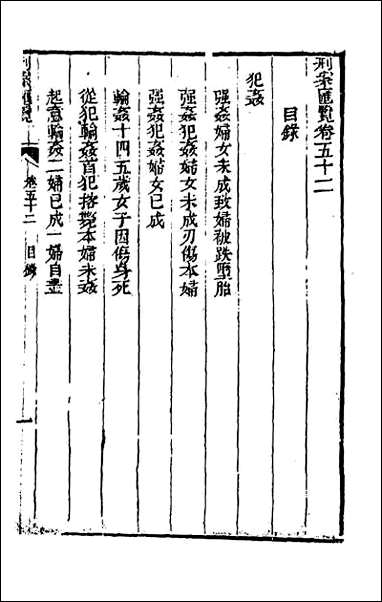 刑案匯覽卷五十二
目錄
犯姦
强姦婦女未成致婦被跌墮胎
强姦犯姦婦女未成刃傷本婦
强姦犯姦婦女已成
輪姦十四五歲女子因傷身死
從犯輪姦首犯搭斃本婦未姦
起意輪姦二婦已成一婦自盡
刑案匯覽 卷五十二 目錄 一